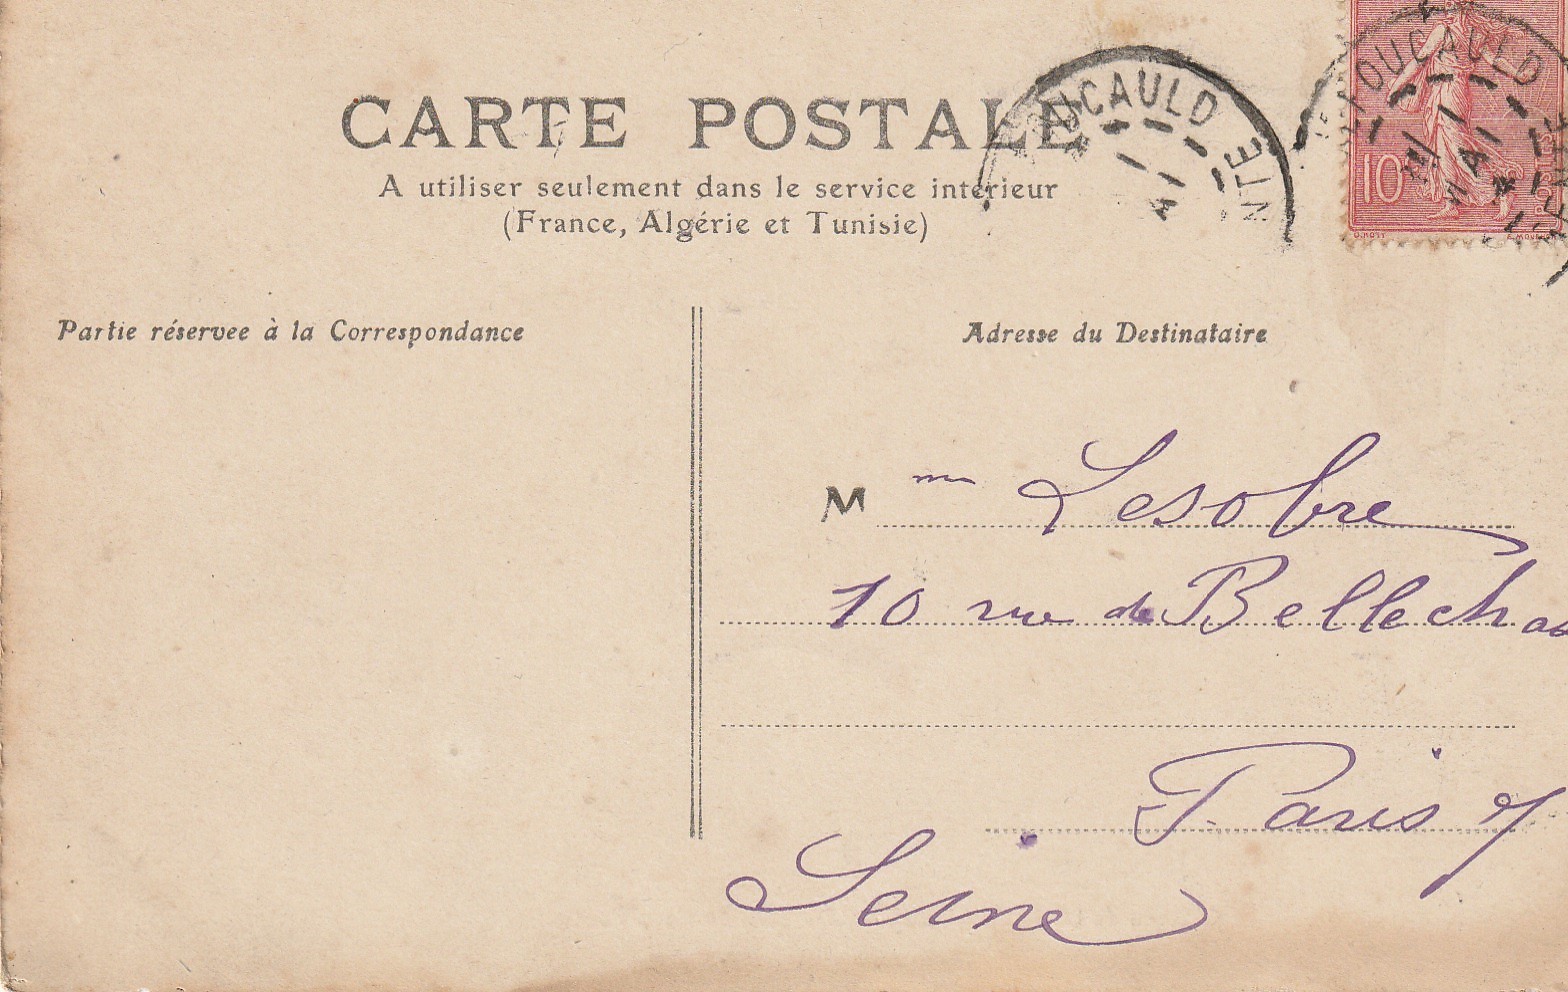 CARTE POSTALE
A utiliser seulement dans le service intérieur
(France, Algérie et Tunisie)
OUCAULD
NTE
FOUCAULD
10
Partie réservee à la Correspondance
Adresse du Destinataire
M me Lesobre
10 rue de Bellechas
Paris
Seine